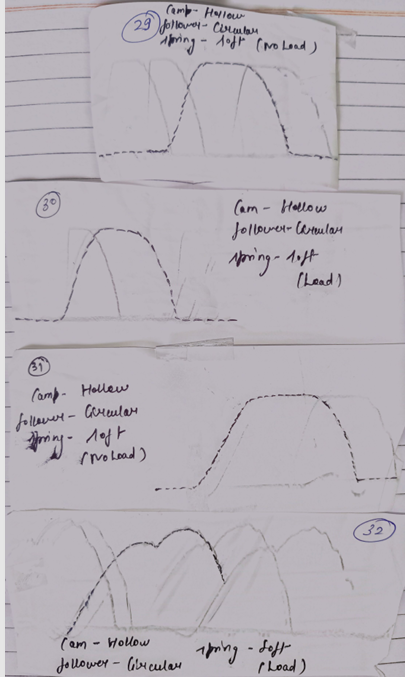 29
Camp - Hollow
follower - Circular
spring - soft (No Load)
30
Cam - Hollow
follower - Circular
spring - soft
(Load)
31
Camp - Hollow
follower - Circular
spring - soft
(No Load)
32
Cam - Hollow spring - soft
follower - Circular (Load)